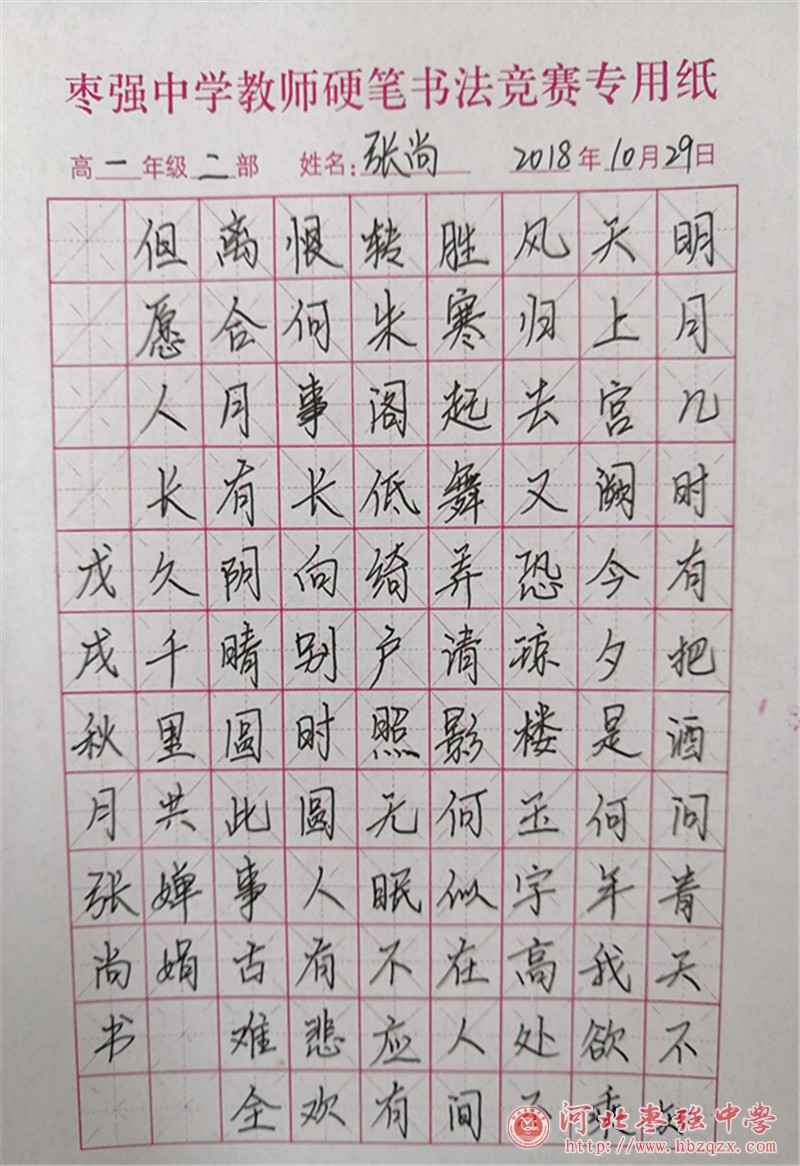 枣强中学教师硬笔书法竞赛专用纸
高一年级二部 姓名：张尚 2018年10月29日
明月几时有把酒问青天不知
天上宫阙今夕是何年我欲乘
风归去又恐琼楼玉宇高处不
胜寒起舞弄清影何似在人间
转朱阁低绮户照无眠不应有
恨何事长向别时圆人有悲欢
离合月有阴晴圆此事古难全
但愿人长久千里共婵娟
戊戌秋月张尚书
河北枣强中學
http://www.hbzqzx.com